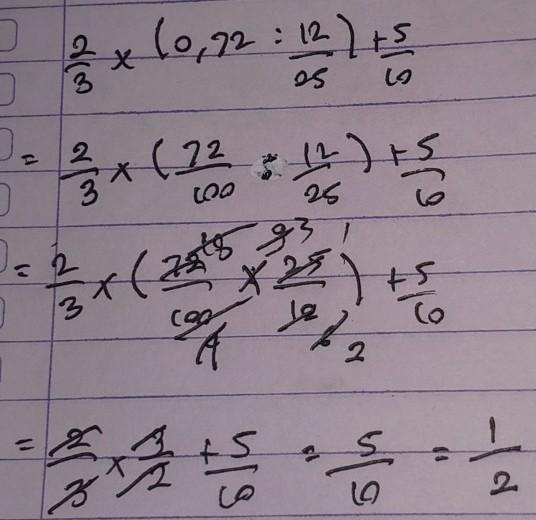 2/3 × (0,72 : 12/25) + 5/10
= 2/3 × (72/100 : 12/25) + 5/10
18 9 3 1
= 2/3 × (72/100 × 25/12) + 5/10
4 6 2
= 2/3 × 3/2 + 5/10 = 5/10 = 1/2